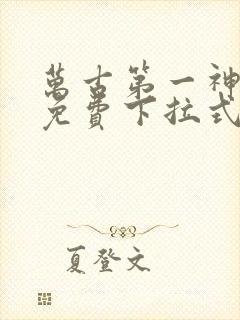 萬古第一神
免費下拉式
夏登文